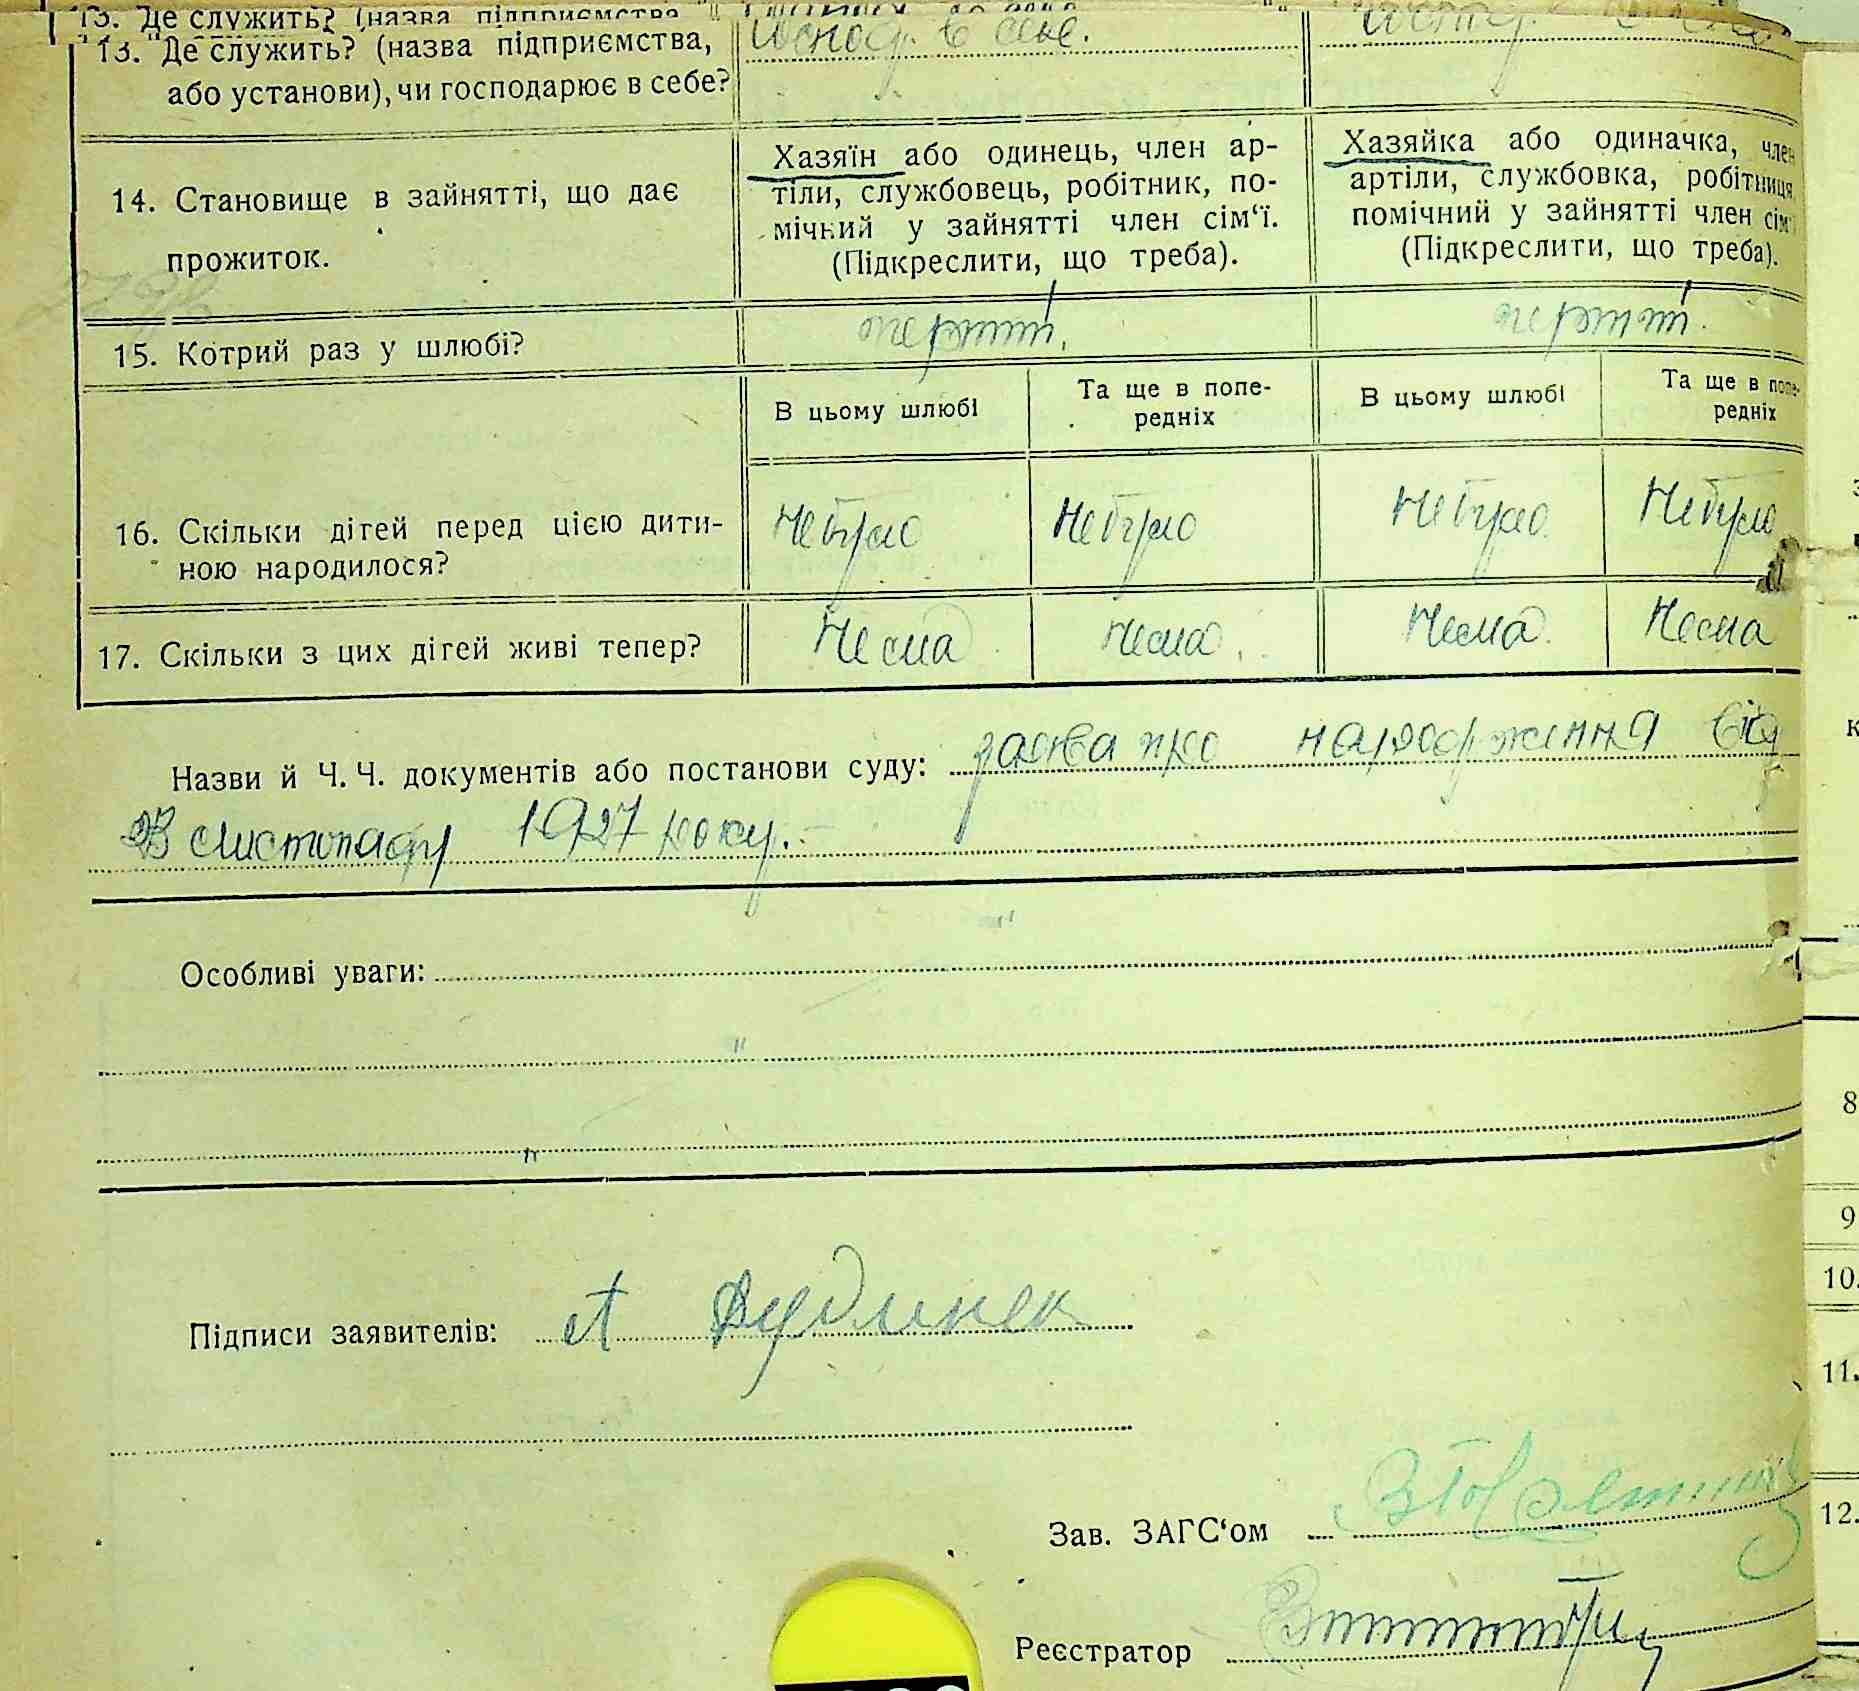 13. Де служить? (назва підприємства,
13. Де служить? (назва підприємства,
або установи), чи господарює в себе?
Господ. в себе.
14. Становище в зайнятті, що дає
прожиток.
Хазяїн або одинець, член ар-
тіли, службовець, робітник, по-
мічний у зайнятті член сім‘ї.
(Підкреслити, що треба).
Хазяйка або одиначка, член
артіли, службовка, робітниця,
помічний у зайнятті член сім‘ї
(Підкреслити, що треба).
15. Котрий раз у шлюбі?
перший.
перший.
В цьому шлюбі
Та ще в попе-
редніх
В цьому шлюбі
Та ще в попе-
редніх
16. Скільки дітей перед цією дити-
ною народилося?
Не було
Не було
Не було
Не було
17. Скільки з цих дітей живі тепер?
Нема
Нема
Нема
Нема
Назви й Ч. Ч. документів або постанови суду: заява про народження від
листопаду 1927 року.
Особливі уваги:
Підписи заявителів: А
Зав. ЗАГС‘ом
Реєстратор
8
9
10.
11.
12.